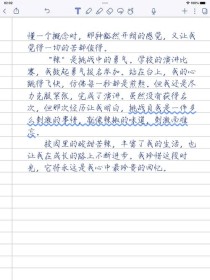 懂一个概念时，那种豁然开朗的感觉，又让我
觉得一切的苦都值得。
“辣”是挑战中的勇气。学校的演讲比
赛，我鼓起勇气报名参加。站在台上，我的心
跳得飞快，仿佛每一秒都是煎熬。但我还是尽
力克服紧张，完成了演讲。虽然没有获得名
次，但那次经历让我明白，挑战自我是一件多
么刺激的事情，就像辣椒的味道，刺激而难
忘。
校园里的酸甜苦辣，丰富了我的生活，也
让我在成长的路上不断进步。我珍惜这段时
光，它将永远是我心中最珍贵的回忆。